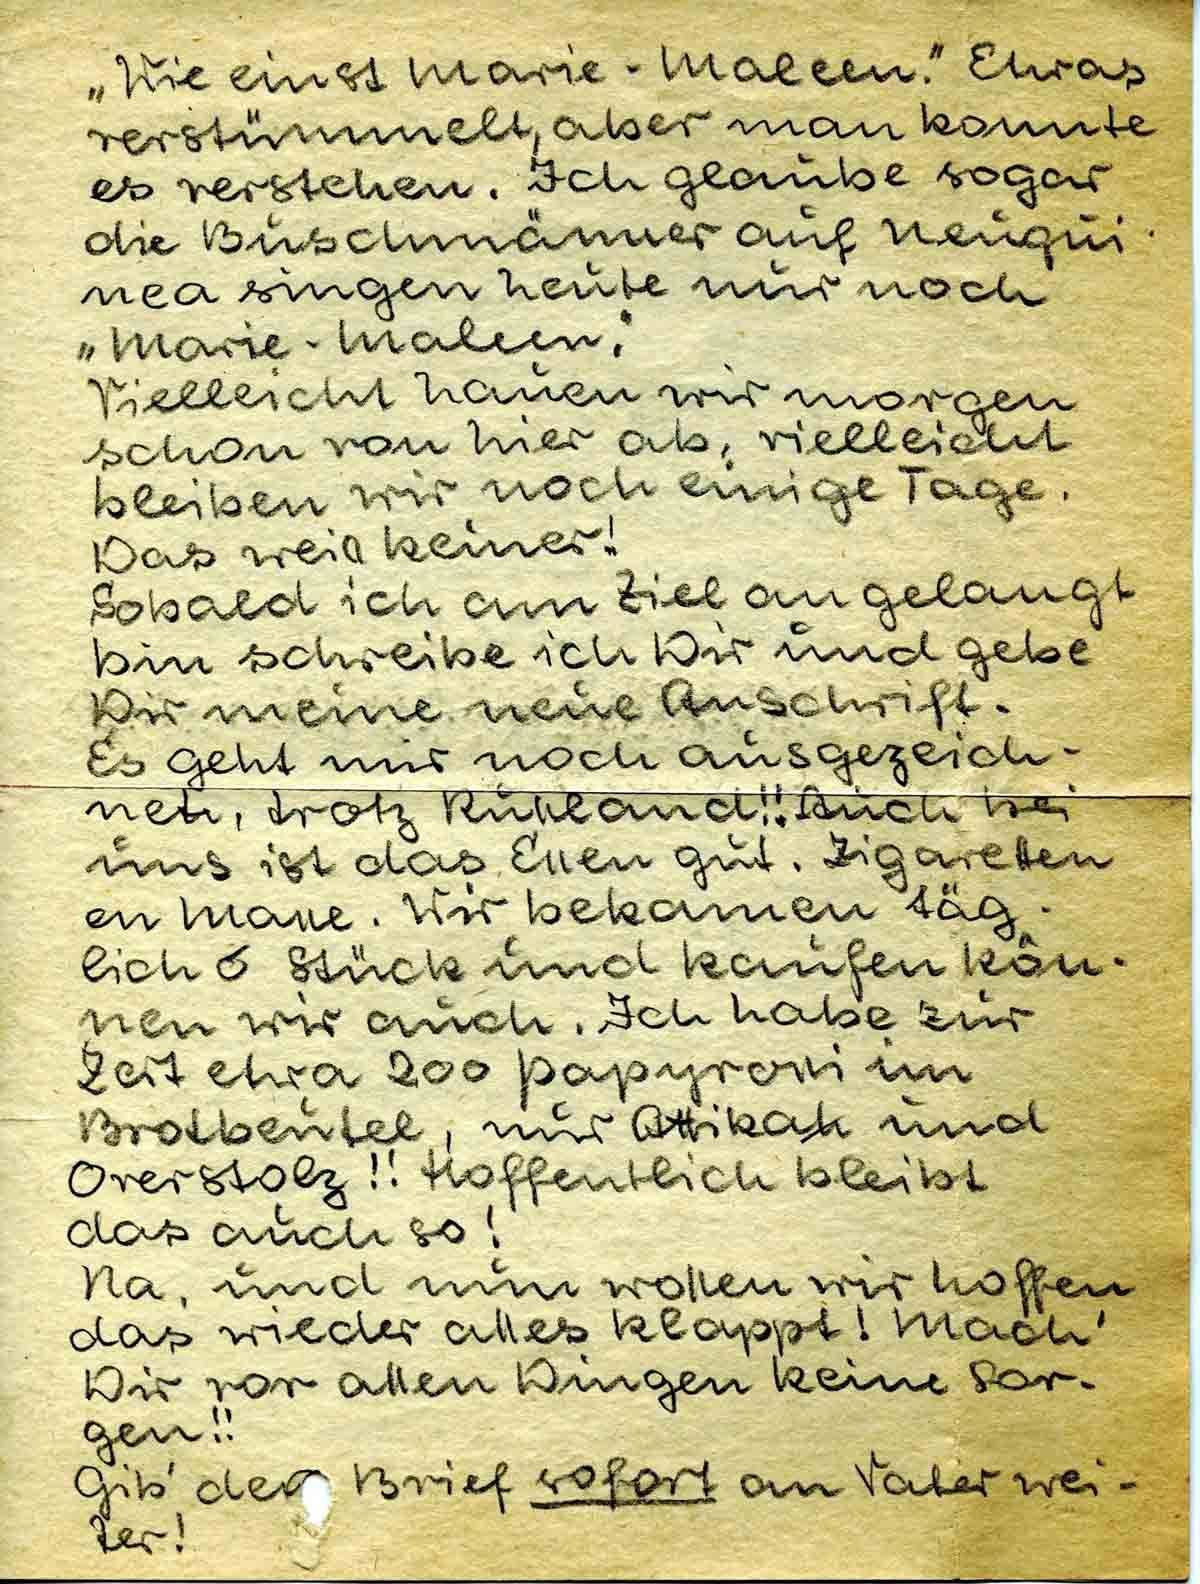 „Wie einst Marie-Maleen." Etwas
verstümmelt, aber man konnte
es verstehen. Ich glaube sogar
die Buschmänner auf Neugui-
nea singen heute nur noch
„Marie-Maleen."
Vielleicht hauen wir morgen
schon von hier ab, vielleicht
bleiben wir noch einige Tage.
Das weiß keiner!
Sobald ich am Ziel angelangt
bin schreibe ich Dir und gebe
Dir meine neue Anschrift.
Es geht mir noch ausgezeich-
net, trotz Rußland!! Auch bei
uns ist das Essen gut. Zigaretten
en masse. Wir bekamen täg-
lich 6 Stück und kaufen kön-
nen wir auch. Ich habe zur
Zeit etwa 200 Papyrossi im
Brotbeutel, nur Attikah und
Overstolz!! Hoffentlich bleibt
das auch so!
Na, und nun wollen wir hoffen
das wieder alles klappt! Mach'
Dir vor allen Dingen keine Sor-
gen!!
Gib' den Brief sofort an Vater wei-
ter!